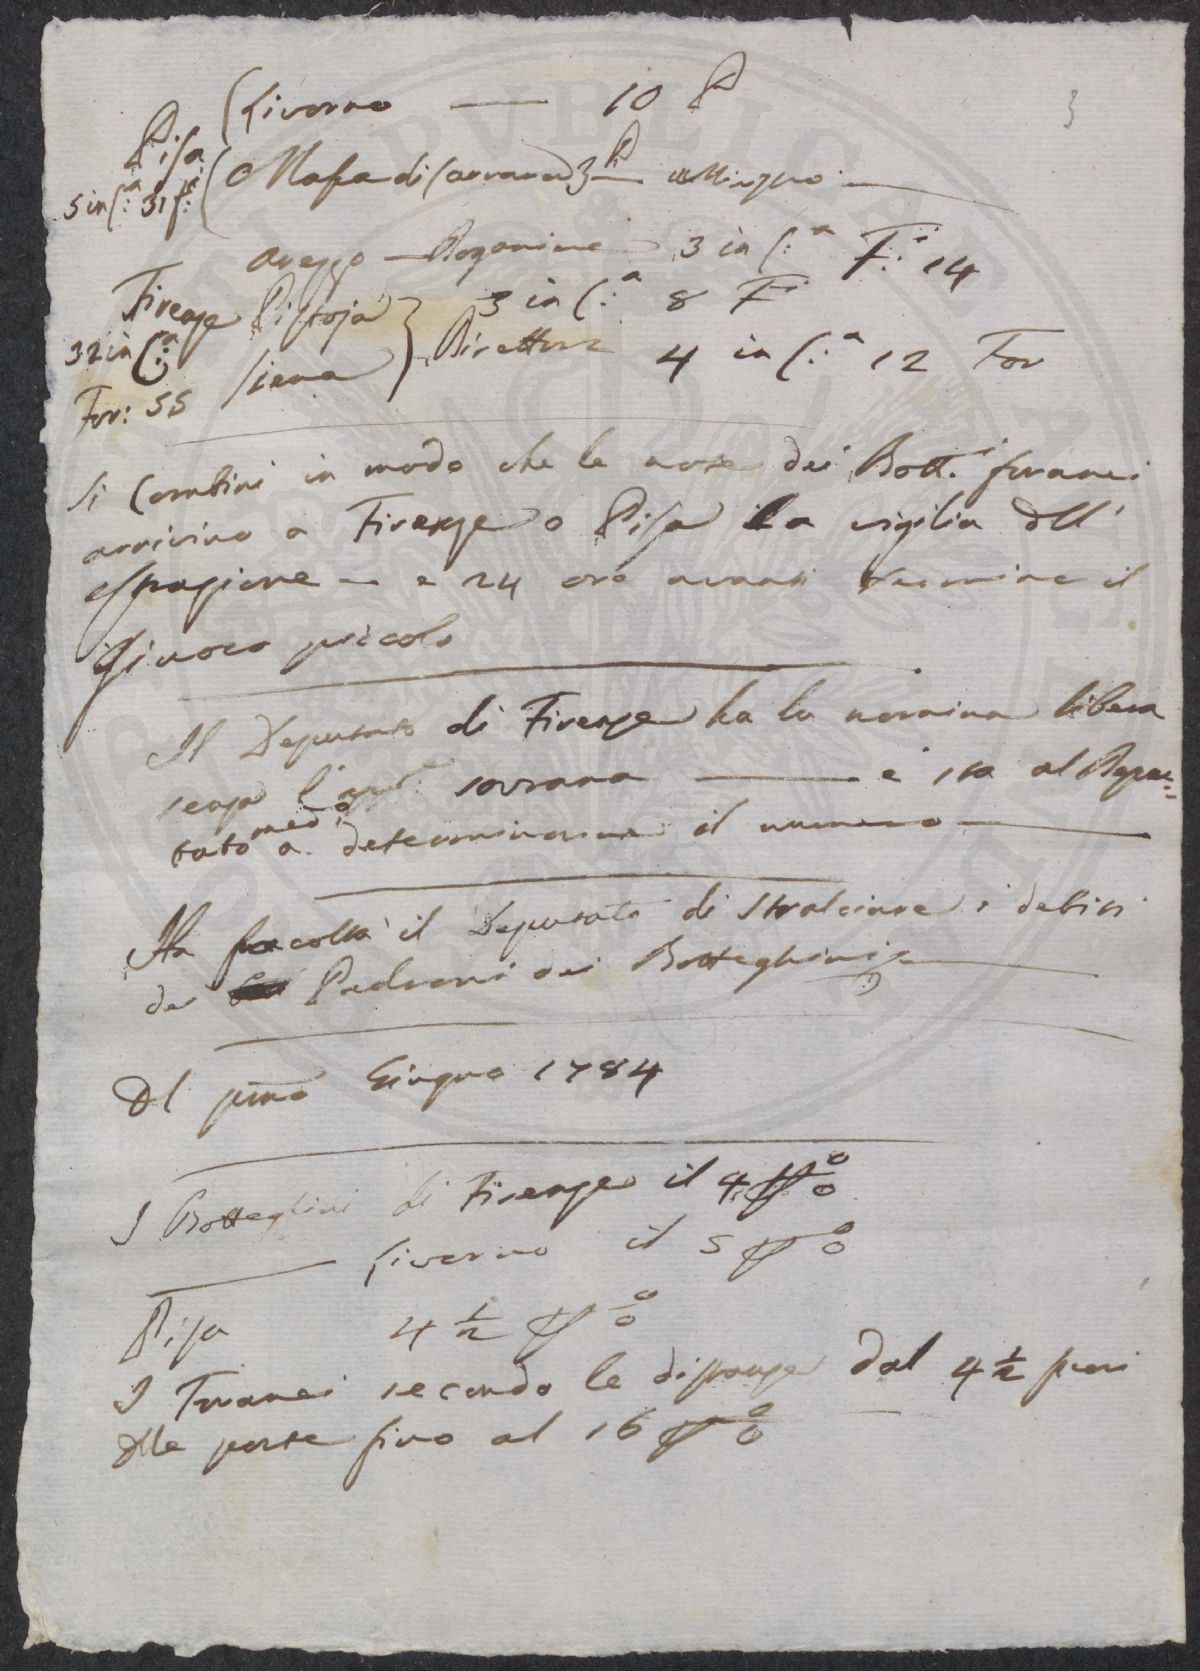 3
Livorno — 10 P
Pisa
Massa di Carrara 3 P
5 in C.a 31 f.i
Arezzo 3 in C.a F.i 14
Firenze Pistoja 3 in C.a 8 F.i
32 in C.a
Siena Direttore 4 in C.a 12 For
For: 55
Si Combini in modo che le note dei Bott.i foranei
arrivino a Firenze o Pisa la vigilia dell'
estrazione — e 24 ore avanti termine il
Giuoco piccolo
Il Deputato di Firenze ha la nomina libera
senza l' sovrana — e sta al Depu=
tato med.o a determinarne il numero —
Ha facoltà il Deputato di stralciare i debiti
dei Padroni dei Botteghini —
Dal pmo Giugno 1784
I Botteghini di Firenze il 4 P %
— Livorno il 5 P %
Pisa 4 1/2 P %
I Foranei secondo le distanze dal 4 1/2 fuori
delle porte fino al 16 P %